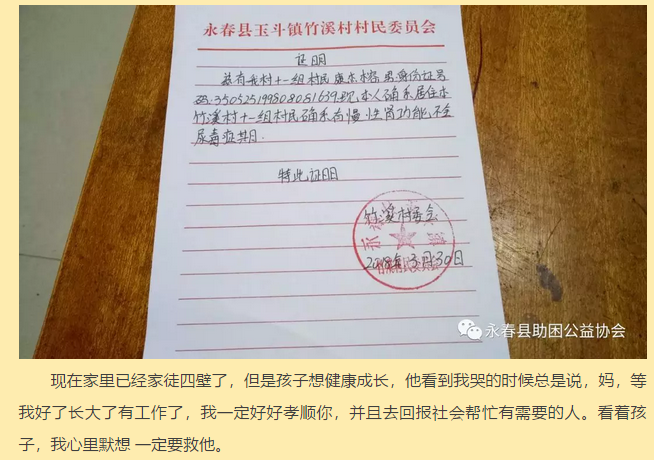 永春县玉斗镇竹溪村村民委员会
证明
兹有我村十一组村民康东榕 男 身份证号
码:350525199808081639现本人确系居住本
竹溪村十一组村民确系有慢性肾功能不全
尿毒症共日.
特此证明
竹溪村委会
2018年3月30日
永春县助困公益协会
现在家里已经家徒四壁了，但是孩子想健康成长，他看到我哭的时候总是说，妈，等
我好了长大了有工作了，我一定好好孝顺你，并且去回报社会帮忙有需要的人。看着孩
子，我心里默想 一定要救他。